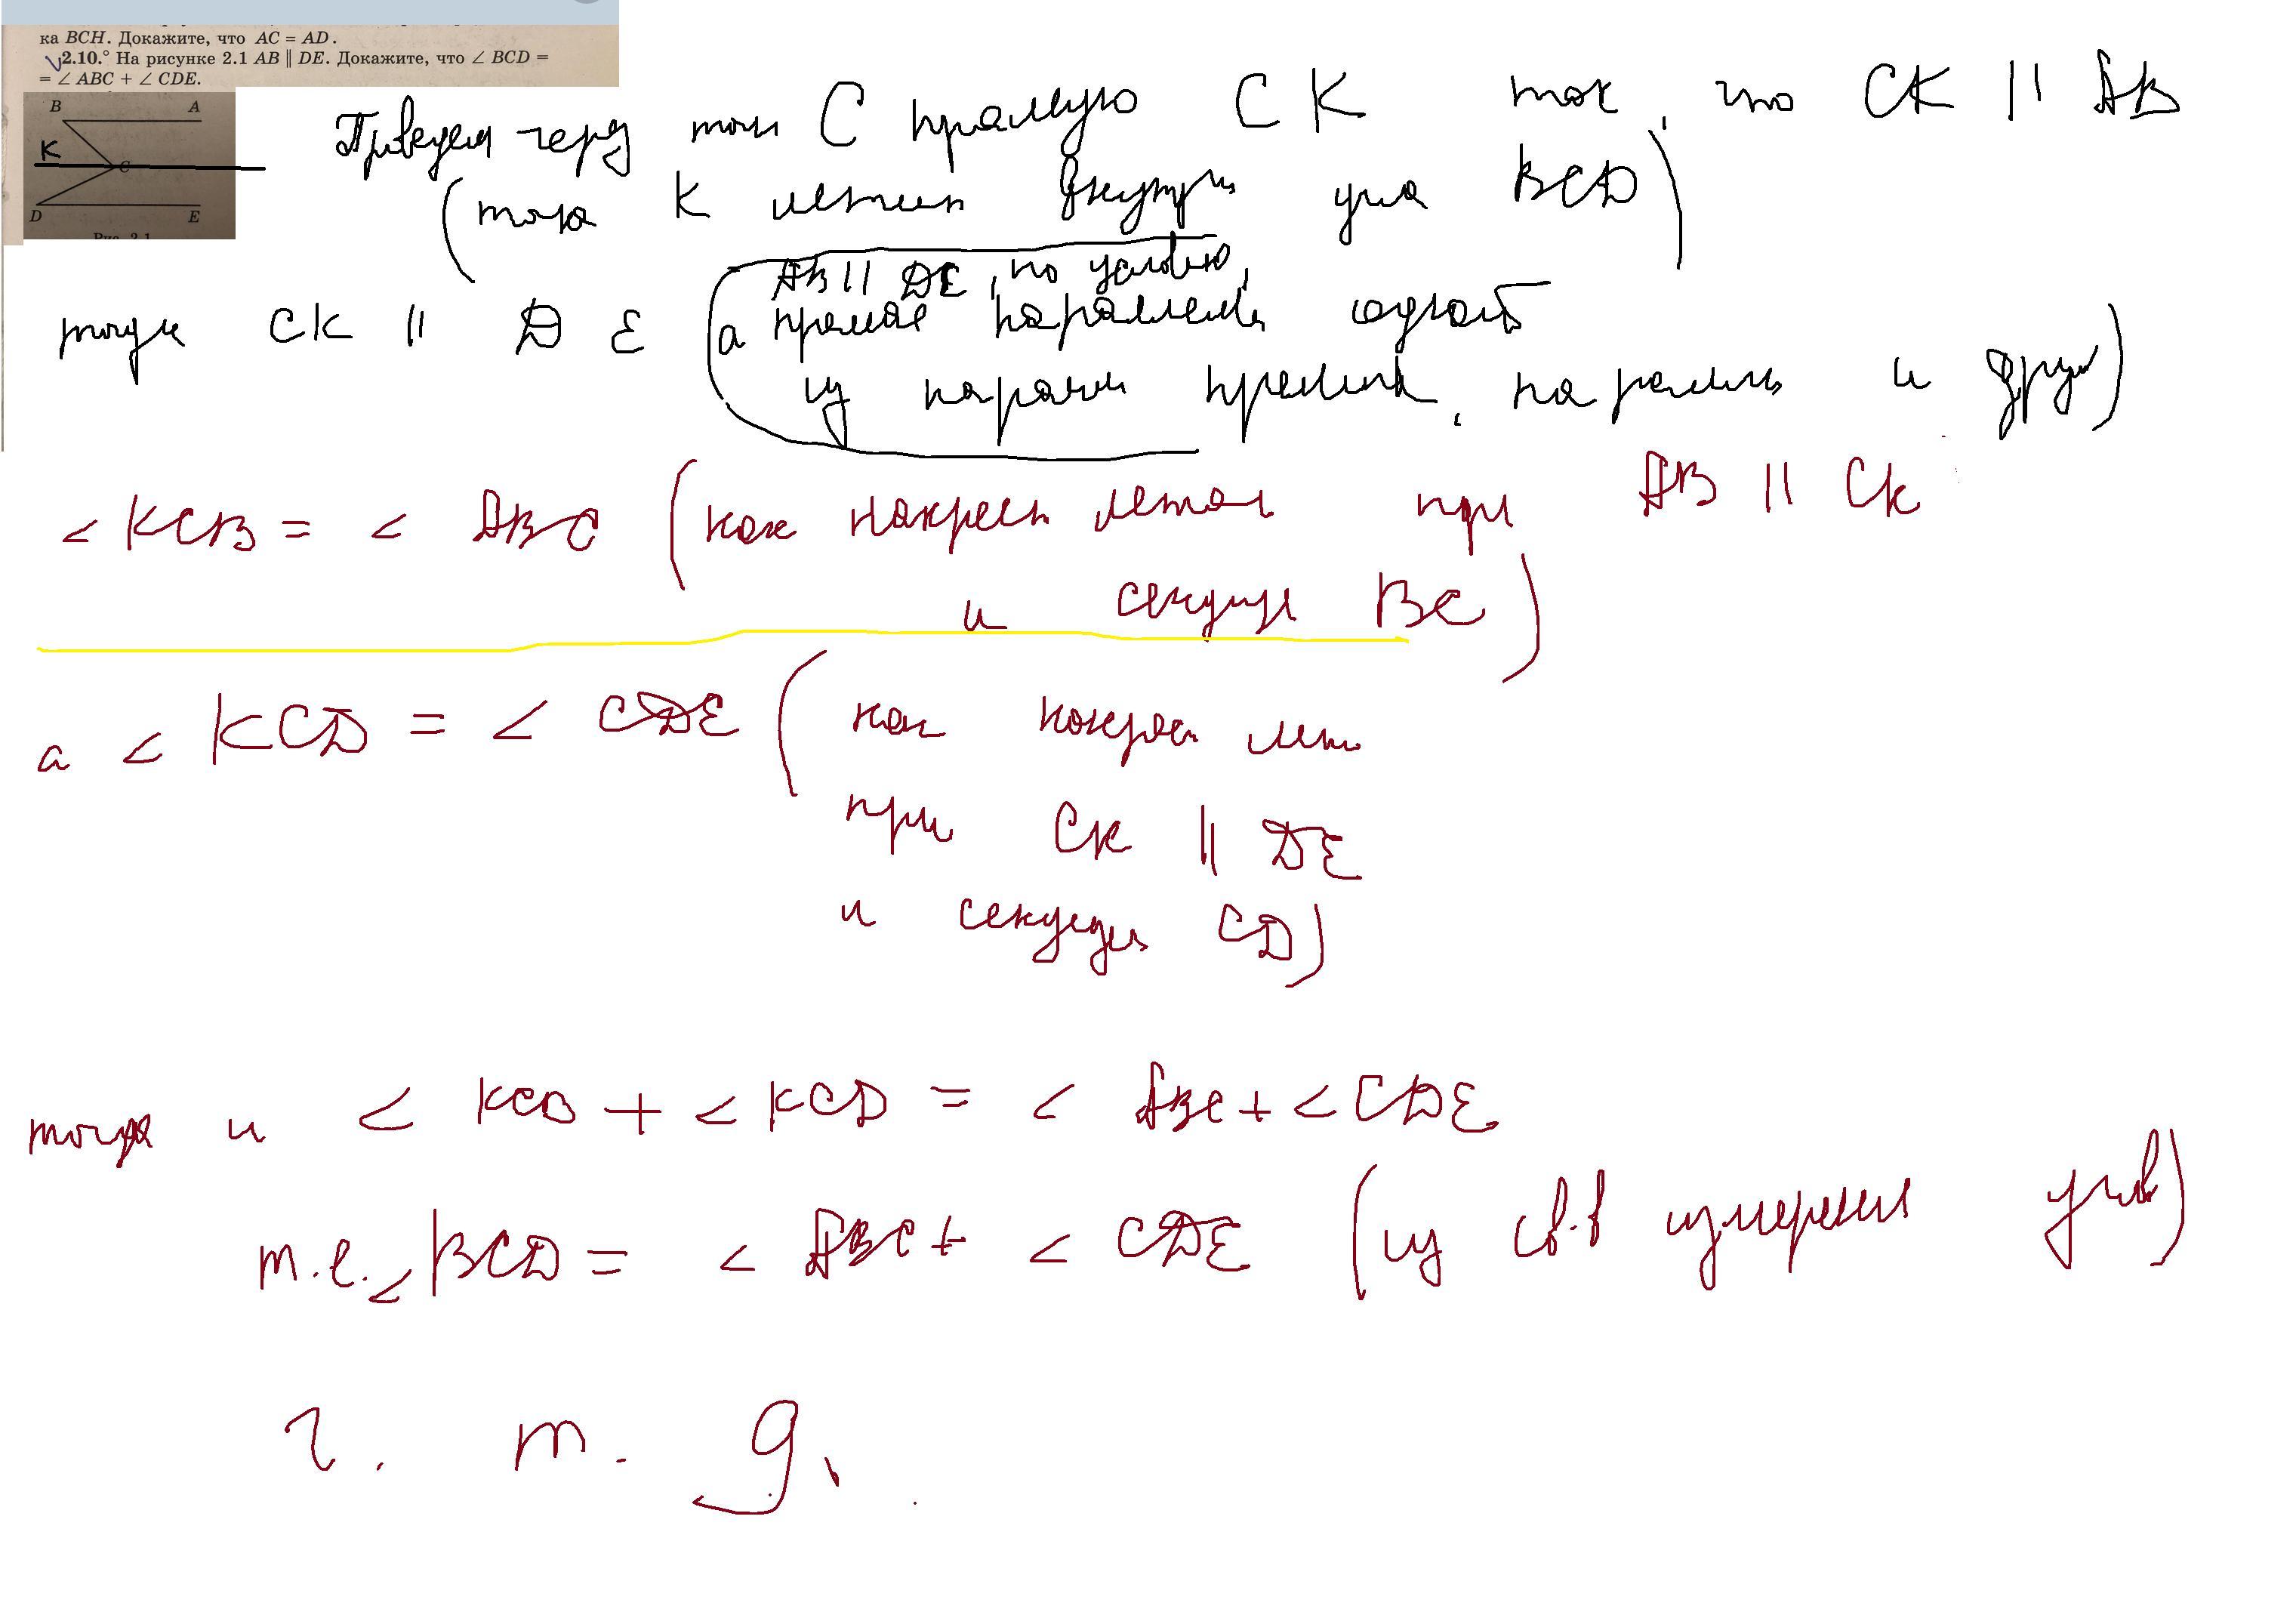 ка BCH. Докажите, что AC = AD.
2.10.° На рисунке 2.1 AB ∥ DE. Докажите, что ∠ BCD =
= ∠ ABC + ∠ CDE.
B A
K C
D E
Проведем через точ C прямую CK так, что CK || AB
(точка K лежит внутри угла BCD)
тогда CK || DE (AB || DE, по условию,
а прямая параллель одной
из паралл прямых, паралель и друг)
< KCB = < ABC (как накрест лежащ при AB || CK
и секущ BC)
а < KCD = < CDE (как накрест леж
при CK || DE
и секущей CD)
тогда и < KCB + < KCD = < ABC + < CDE
т.е. < BCD = < ABC + < CDE (из св-в измерения углов)
ч. т. д.